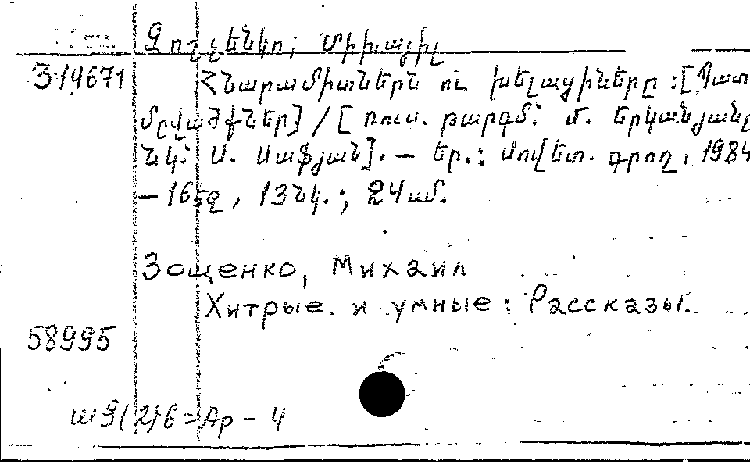 Զոշչենկո, Միխայիլ
314671 Հնարամիտներն ու խելացիները : [Պատ
մըվածքներ] / [ռուս. թարգմ՝ Մ. Երկանյանը
նկ՝ Ս. Սաֆյան]. — Եր.: Սովետ. գրող, 1984
— 16 էջ, 13 նկ.; 24 սմ.
Зощенко, Михаил
Хитрые. и умные : Рассказы.
58995
(2)6 = Ар - 4